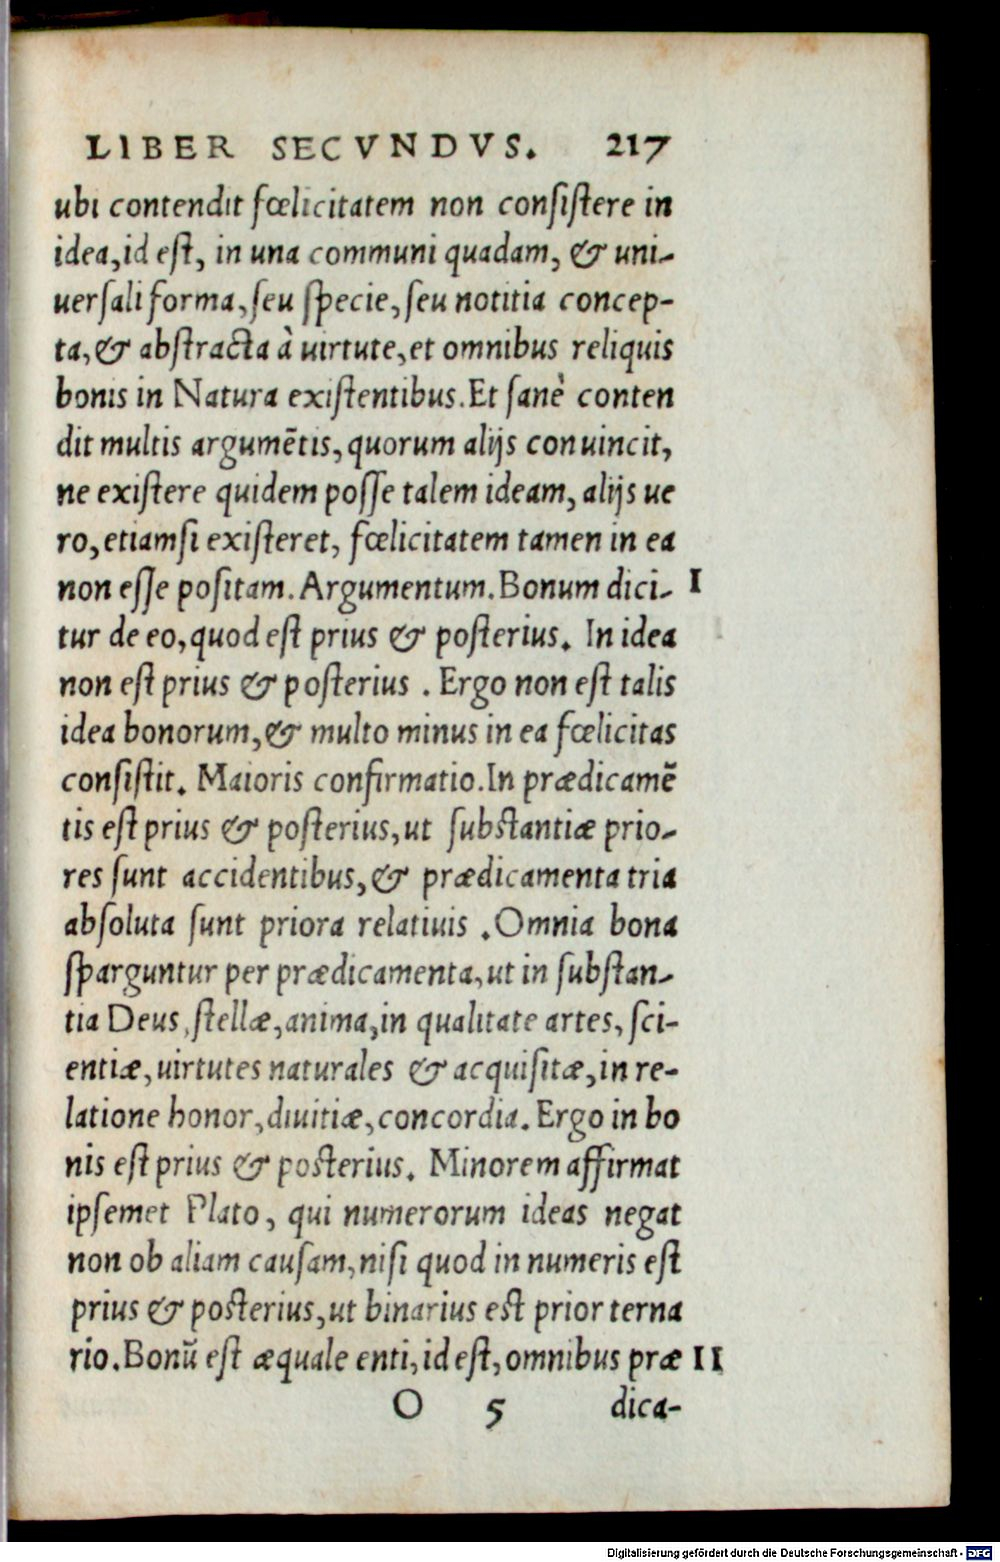 LIBER SECVNDVS. 217
ubi contendit fœlicitatem non consistere in
idea, id est, in una communi quadam, & uni-
uersali forma, seu specie, seu notitia concep-
ta, & abstracta à uirtute, et omnibus reliquis
bonis in Natura existentibus. Et sanè conten
dit multis argumētis, quorum alijs conuincit,
ne existere quidem posse talem ideam, alijs ue
ro, etiamsi existeret, fœlicitatem tamen in ea
non esse positam. Argumentum. Bonum dici- I
tur de eo, quod est prius & posterius. In idea
non est prius & posterius . Ergo non est talis
idea bonorum, & multo minus in ea fœlicitas
consistit. Maioris confirmatio. In prædicamē
tis est prius & posterius, ut substantiæ prio-
res sunt accidentibus, & prædicamenta tria
absoluta sunt priora relatiuis . Omnia bona
sparguntur per prædicamenta, ut in substan-
tia Deus, stellæ, anima, in qualitate artes, sci-
entiæ, uirtutes naturales & acquisitæ, in re-
latione honor, diuitiæ, concordia. Ergo in bo
nis est prius & posterius. Minorem affirmat
ipsemet Plato, qui numerorum ideas negat
non ob aliam causam, nisi quod in numeris est
prius & posterius, ut binarius est prior terna
rio. Bonū est æquale enti, id est, omnibus præ II
O 5 dica-
Digitalisierung gefördert durch die Deutsche Forschungsgemeinschaft - DFG